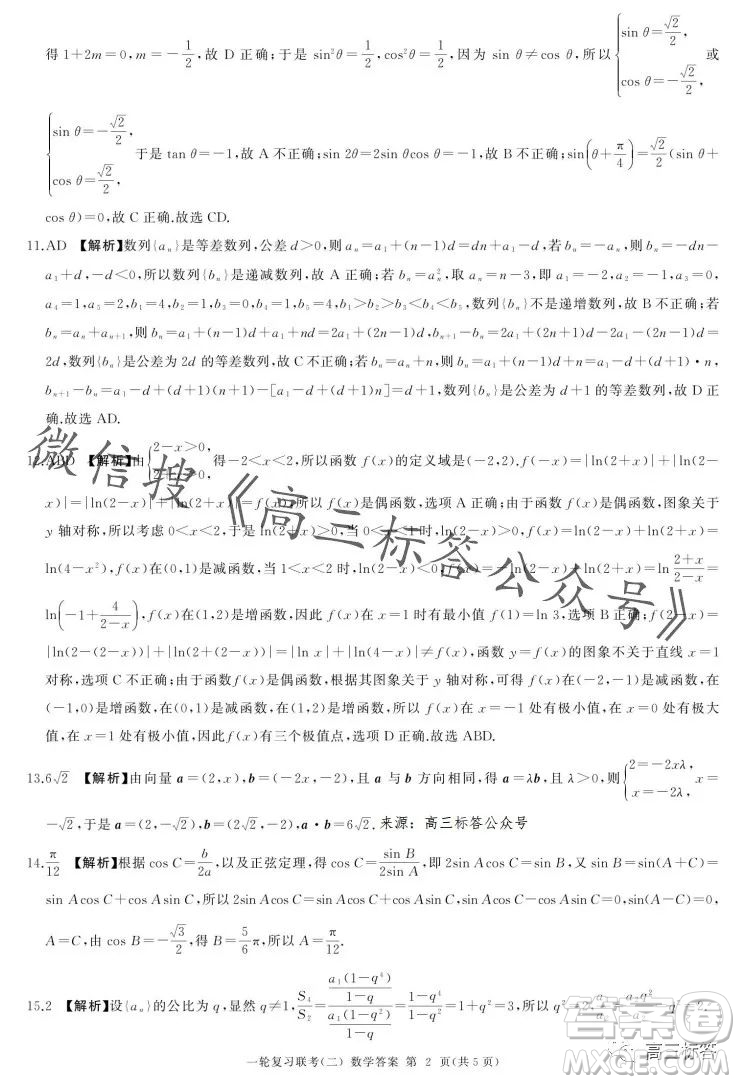 得1+2m=0,m=-1/2,故D正确;于是sin²θ=1/2,cos²θ=1/2,因为sin θ≠cos θ,所以{sin θ=√2/2, cos θ=-√2/2 或
{sin θ=-√2/2, cos θ=√2/2, 于是tan θ=-1,故A不正确;sin 2θ=2sin θcos θ=-1,故B不正确;sin(θ+π/4)=√2/2(sin θ+
cos θ)=0,故C正确.故选CD.
11.AD 【解析】数列{aₙ}是等差数列,公差d>0,则aₙ=a₁+(n-1)d=dn+a₁-d,若bₙ=-aₙ,则bₙ=-dn-
a₁+d,-d<0,所以数列{bₙ}是递减数列,故A正确;若bₙ=aₙ²,取aₙ=n-3,即a₁=-2,a₂=-1,a₃=0,
a₄=1,a₅=2,b₁=4,b₂=1,b₃=0,b₄=1,b₅=4,于是b₁>b₂>b₃<b₄<b₅,数列{bₙ}不是递增数列,故B不正确;若
bₙ=aₙ+aₙ₊₁,则bₙ=a₁+(n-1)d+a₁+nd=2a₁+(2n-1)d,bₙ₊₁-bₙ=2a₁+(2n+1)d-2a₁-(2n-1)d=
2d,数列{bₙ}是公差为2d的等差数列,故C不正确;若bₙ=aₙ+n,则bₙ=a₁+(n-1)d+n=a₁-d+(d+1)·n,
bₙ₊₁-bₙ=a₁-d+(d+1)(n+1)-[a₁-d+(d+1)n]=d+1,所以数列{bₙ}是公差为d+1的等差数列,故D正
确.故选AD.
12.ABD 【解析】由{2-x>0, 得-2<x<2,所以函数f(x)的定义域是(-2,2),f(-x)=|ln(2+x)|+|ln(2-
x)|=|ln(2-x)|+|ln(2+x)|=f(x),所以f(x)是偶函数,选项A正确;由于函数f(x)是偶函数,图象关于
y轴对称,所以考虑0<x<2,于是ln(2+x)>0,当0<x<1时,ln(2-x)>0,f(x)=ln(2-x)+ln(2+x)=
ln(4-x²),f(x)在(0,1)是减函数,当1<x<2时,ln(2-x)<0,f(x)=-ln(2-x)+ln(2+x)=ln (2+x)/(2-x)=
ln(-1+4/(2-x)),f(x)在(1,2)是增函数,因此f(x)在x=1时有最小值f(1)=ln 3,选项B正确;f(2-x)=
|ln(2-(2-x))|+|ln(2+(2-x))|=|ln x|+|ln(4-x)|≠f(x),函数y=f(x)的图象不关于直线x=1
对称,选项C不正确;由于函数f(x)是偶函数,根据其图象关于y轴对称,可得f(x)在(-2,-1)是减函数,在
(-1,0)是增函数,在(0,1)是减函数,在(1,2)是增函数,所以f(x)在x=-1有极小值,在x=0有极大
值,在x=1有极小值,因此f(x)有三个极值点,选项D正确.故选ABD.
13.6√2 【解析】由向量a=(2,x),b=(-2x,-2),且a与b方向相同,得a=λb,且λ>0,则{2=-2xλ, x=
-√2,于是a=(2,-√2),b=(2√2,-2),a·b=6√2.来源:高三标答公众号
14.π/12 【解析】根据cos C=b/2a,以及正弦定理,得cos C=sin B/2sin A,即2sin Acos C=sin B,又sin B=sin(A+C)=
sin Acos C+cos Asin C,所以2sin Acos C=sin Acos C+cos Asin C,sin Acos C-cos Asin C=0,sin(A-C)=0,
A=C,由cos B=-√3/2,得B=5/6π,所以A=π/12.
15.2 【解析】设{aₙ}的公比为q,显然q≠1,S₄/S₂=(a₁(1-q⁴)/(1-q))/(a₁(1-q²)/(1-q))=(1-q⁴)/(1-q²)=1+q²=3,所以q²=2,
一轮复习联考(二) 数学答案 第 2 页(共5页)
微信搜《高三标答公众号》
答案圈
MXQE.COM
高三标答